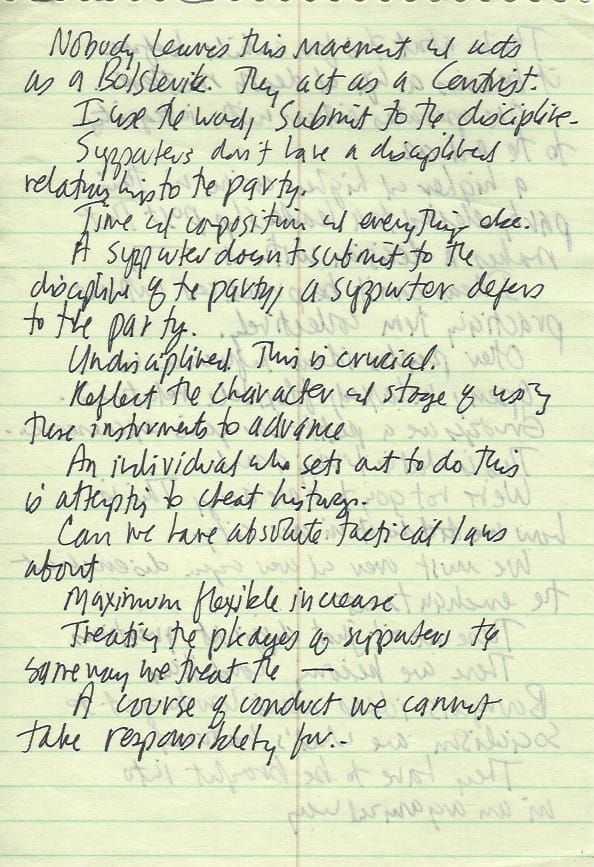 Nobody leaves this movement and acts
as a Bolshevik. They act as a Centrist.
I use the word, Submit to the discipline.
Supporters don't have a disciplined
relationship to the party.
Time and composition and everything else.
A supporter doesn't submit to the
discipline of the party, a supporter defers
to the party.
Undisciplined. This is crucial.
Reflect the character and stage of using
these instruments to advance
An individual who sets out to do this
is attempting to cheat history.
Can we have absolute tactical laws
about
Maximum flexible increase
Treating the pledges of supporters the
same way we treat the —
A course of conduct we cannot
take responsibility for..